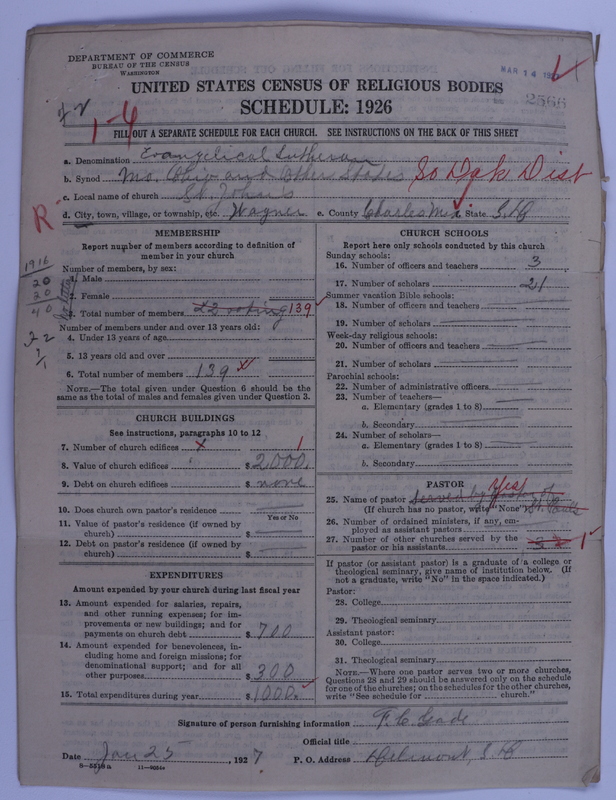 DEPARTMENT OF COMMERCE
BUREAU OF THE CENSUS
WASHINGTON
MAR 14
2566
UNITED STATES CENSUS OF RELIGIOUS BODIES
SCHEDULE: 1926
FILL OUT A SEPARATE SCHEDULE FOR EACH CHURCH. SEE INSTRUCTIONS ON THE BACK OF THIS SHEET
a. Denomination Evangelical Lutheran
b. Synod Mo. Ohio and Other States So Dak Dist
c. Local name of church St. John's
d. City, town, village, or township, etc. Wagner e. County Charles Mix State S.D.
R
1916
20
20
40
MEMBERSHIP
Report number of members according to definition of member in your church
Number of members, by sex:
1. Male
2. Female
3. Total number of members 22 voting 139
Number of members under and over 13 years old:
4. Under 13 years of age
5. 13 years old and over
6. Total number of members 139
NOTE.—The total given under Question 6 should be the same as the total of males and females given under Question 3.
CHURCH BUILDINGS
See instructions, paragraphs 10 to 12
7. Number of church edifices 1
8. Value of church edifices $ 2000.
9. Debt on church edifices $ none
10. Does church own pastor's residence
Yes or No
11. Value of pastor's residence (if owned by
church) $
12. Debt on pastor's residence (if owned by
church) $
EXPENDITURES
Amount expended by your church during last fiscal year
13. Amount expended for salaries, repairs,
and other running expenses; for im-
provements or new buildings; and for
payments on church debt $ 700
14. Amount expended for benevolences, in-
cluding home and foreign missions; for
denominational support; and for all
other purposes $ 300
15. Total expenditures during year $ 1000.
CHURCH SCHOOLS
Report here only schools conducted by this church
Sunday schools:
16. Number of officers and teachers 3
17. Number of scholars 21
Summer vacation Bible schools:
18. Number of officers and teachers
19. Number of scholars
Week-day religious schools:
20. Number of officers and teachers
21. Number of scholars
Parochial schools:
22. Number of administrative officers
23. Number of teachers—
a. Elementary (grades 1 to 8)
b. Secondary
24. Number of scholars—
a. Elementary (grades 1 to 8)
b. Secondary
PASTOR
Yes
25. Name of pastor Served by Pastor of
(If church has no pastor, write "None") St. Paul's
26. Number of ordained ministers, if any, em-
ployed as assistant pastors
27. Number of other churches served by the
pastor or his assistants 1
If pastor (or assistant pastor) is a graduate of a college or
theological seminary, give name of institution below. (If
not a graduate, write "No" in the space indicated.)
Pastor:
28. College
29. Theological seminary
Assistant pastor:
30. College
31. Theological seminary
NOTE.—Where one pastor serves two or more churches,
Questions 28 and 29 should be answered only on the schedule
for one of the churches; on the schedules for the other churches,
write "See schedule for church."
Signature of person furnishing information F. C. Gade
Official title
Date Jan 25, 1927 P. O. Address Delmont, S.D.
8-5519a 11-9084